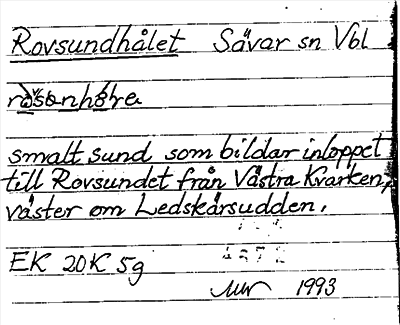 Rovsundhålet Sävar sn Vbl
smalt sund som bildar inloppet
till Rovsundet från Västra Kvarken,
väster om Ledskärsudden.
EK 20K 5g
1993